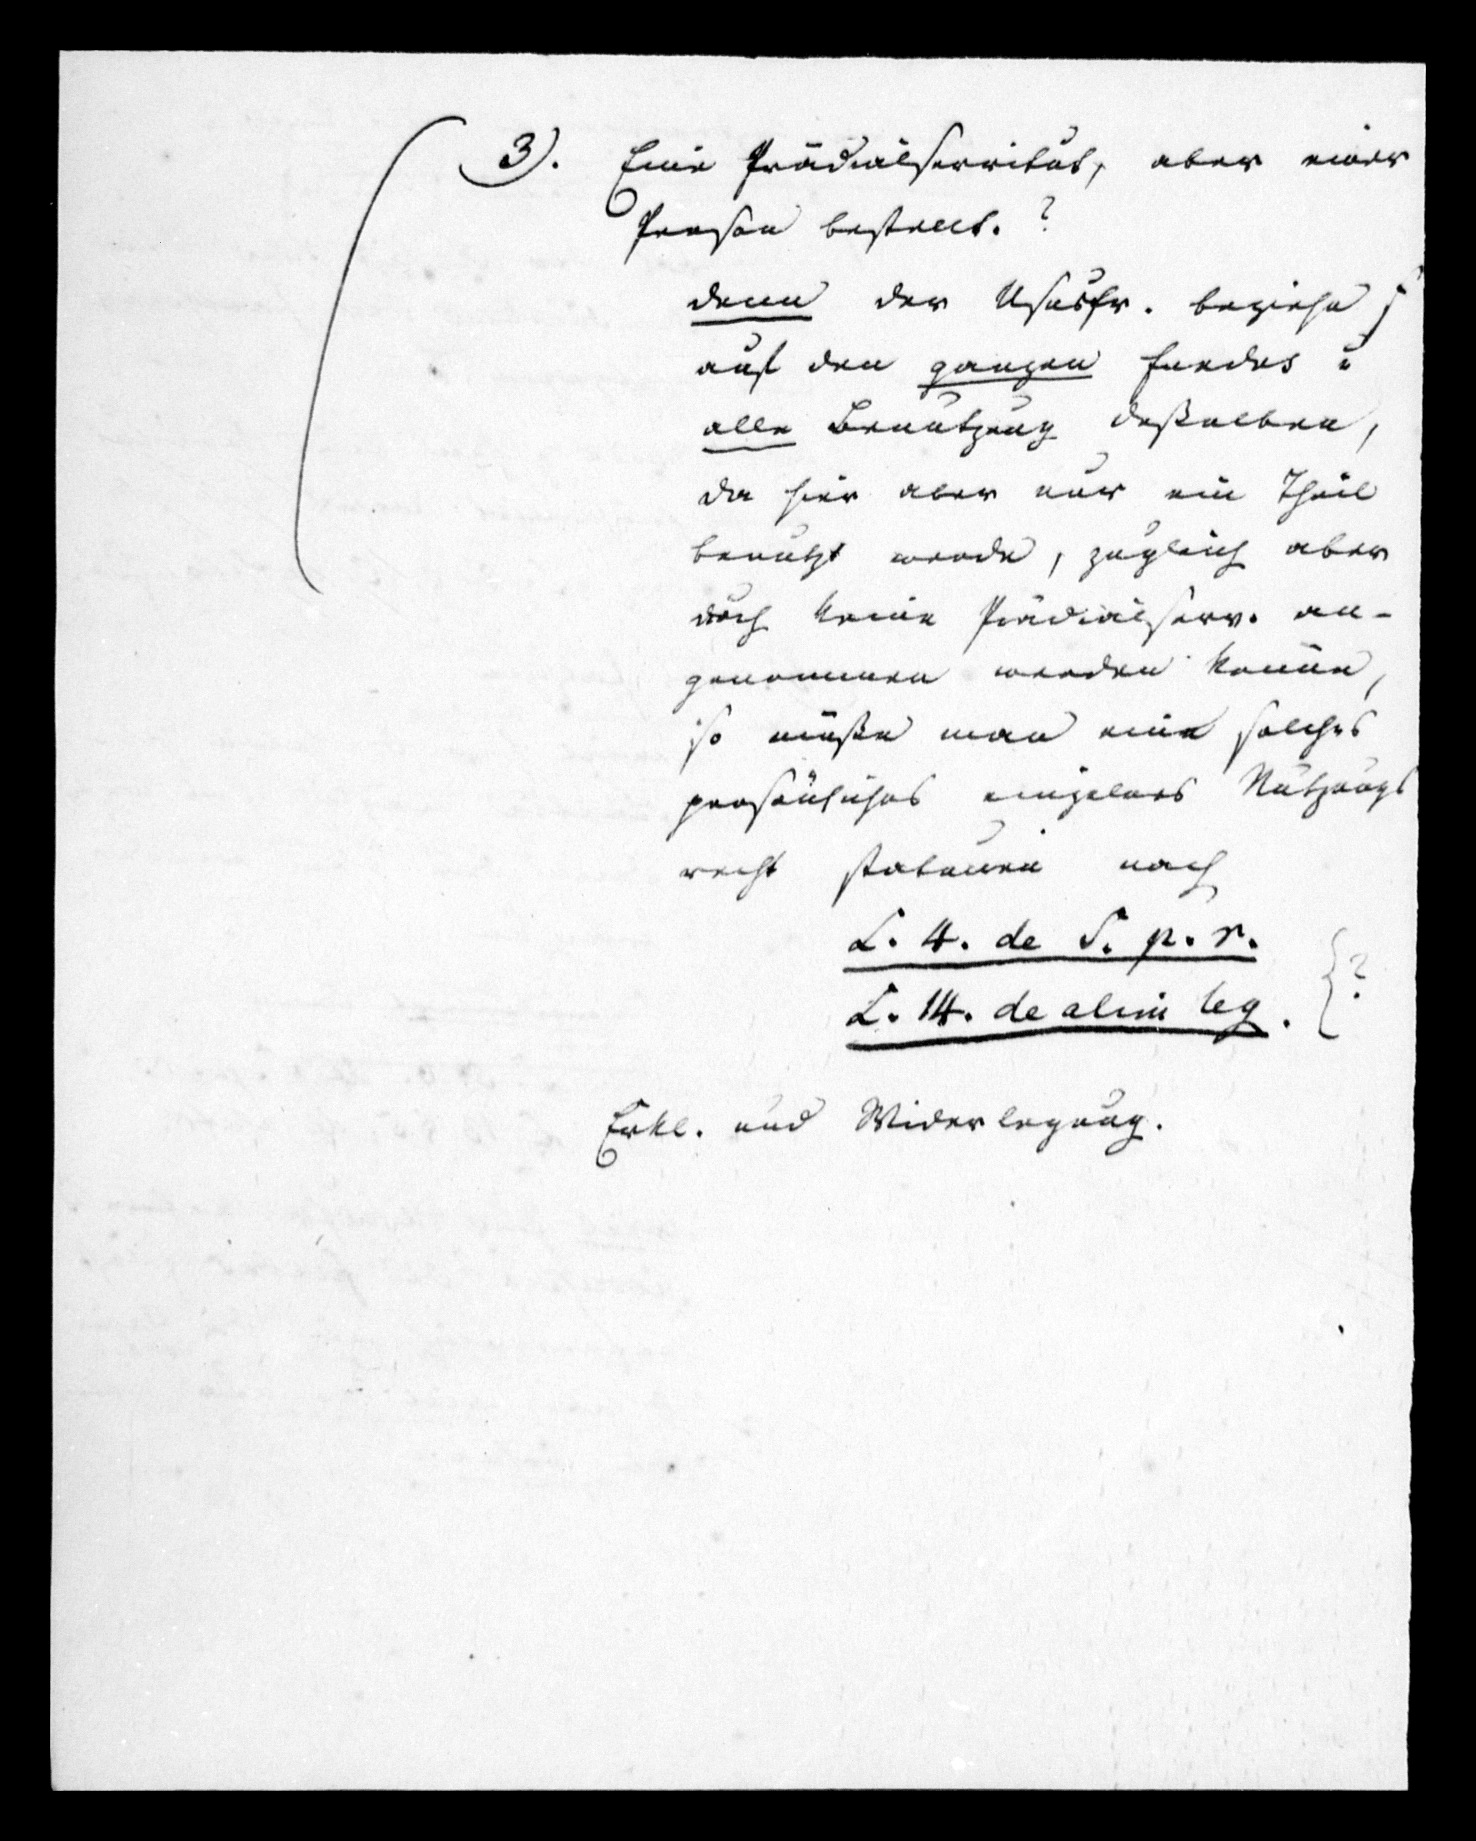 3). Eine Prädialservitut, aber einer
Person bestellt. ?
denn der Ususfr. beziehe s
auf den ganzen fundus u
alle Benutzung deßelben,
da hier aber nur ein Theil
benutzt werde, zugleich aber
doch keine Prädialserv. an-
genommen werden könne,
so müße man ein solches
persönliches einzelnes Nutzungs
recht statuiren nach
L. 4. de S. p. r.
L. 14. de alim leg. } ?
Erkl. und Widerlegung.